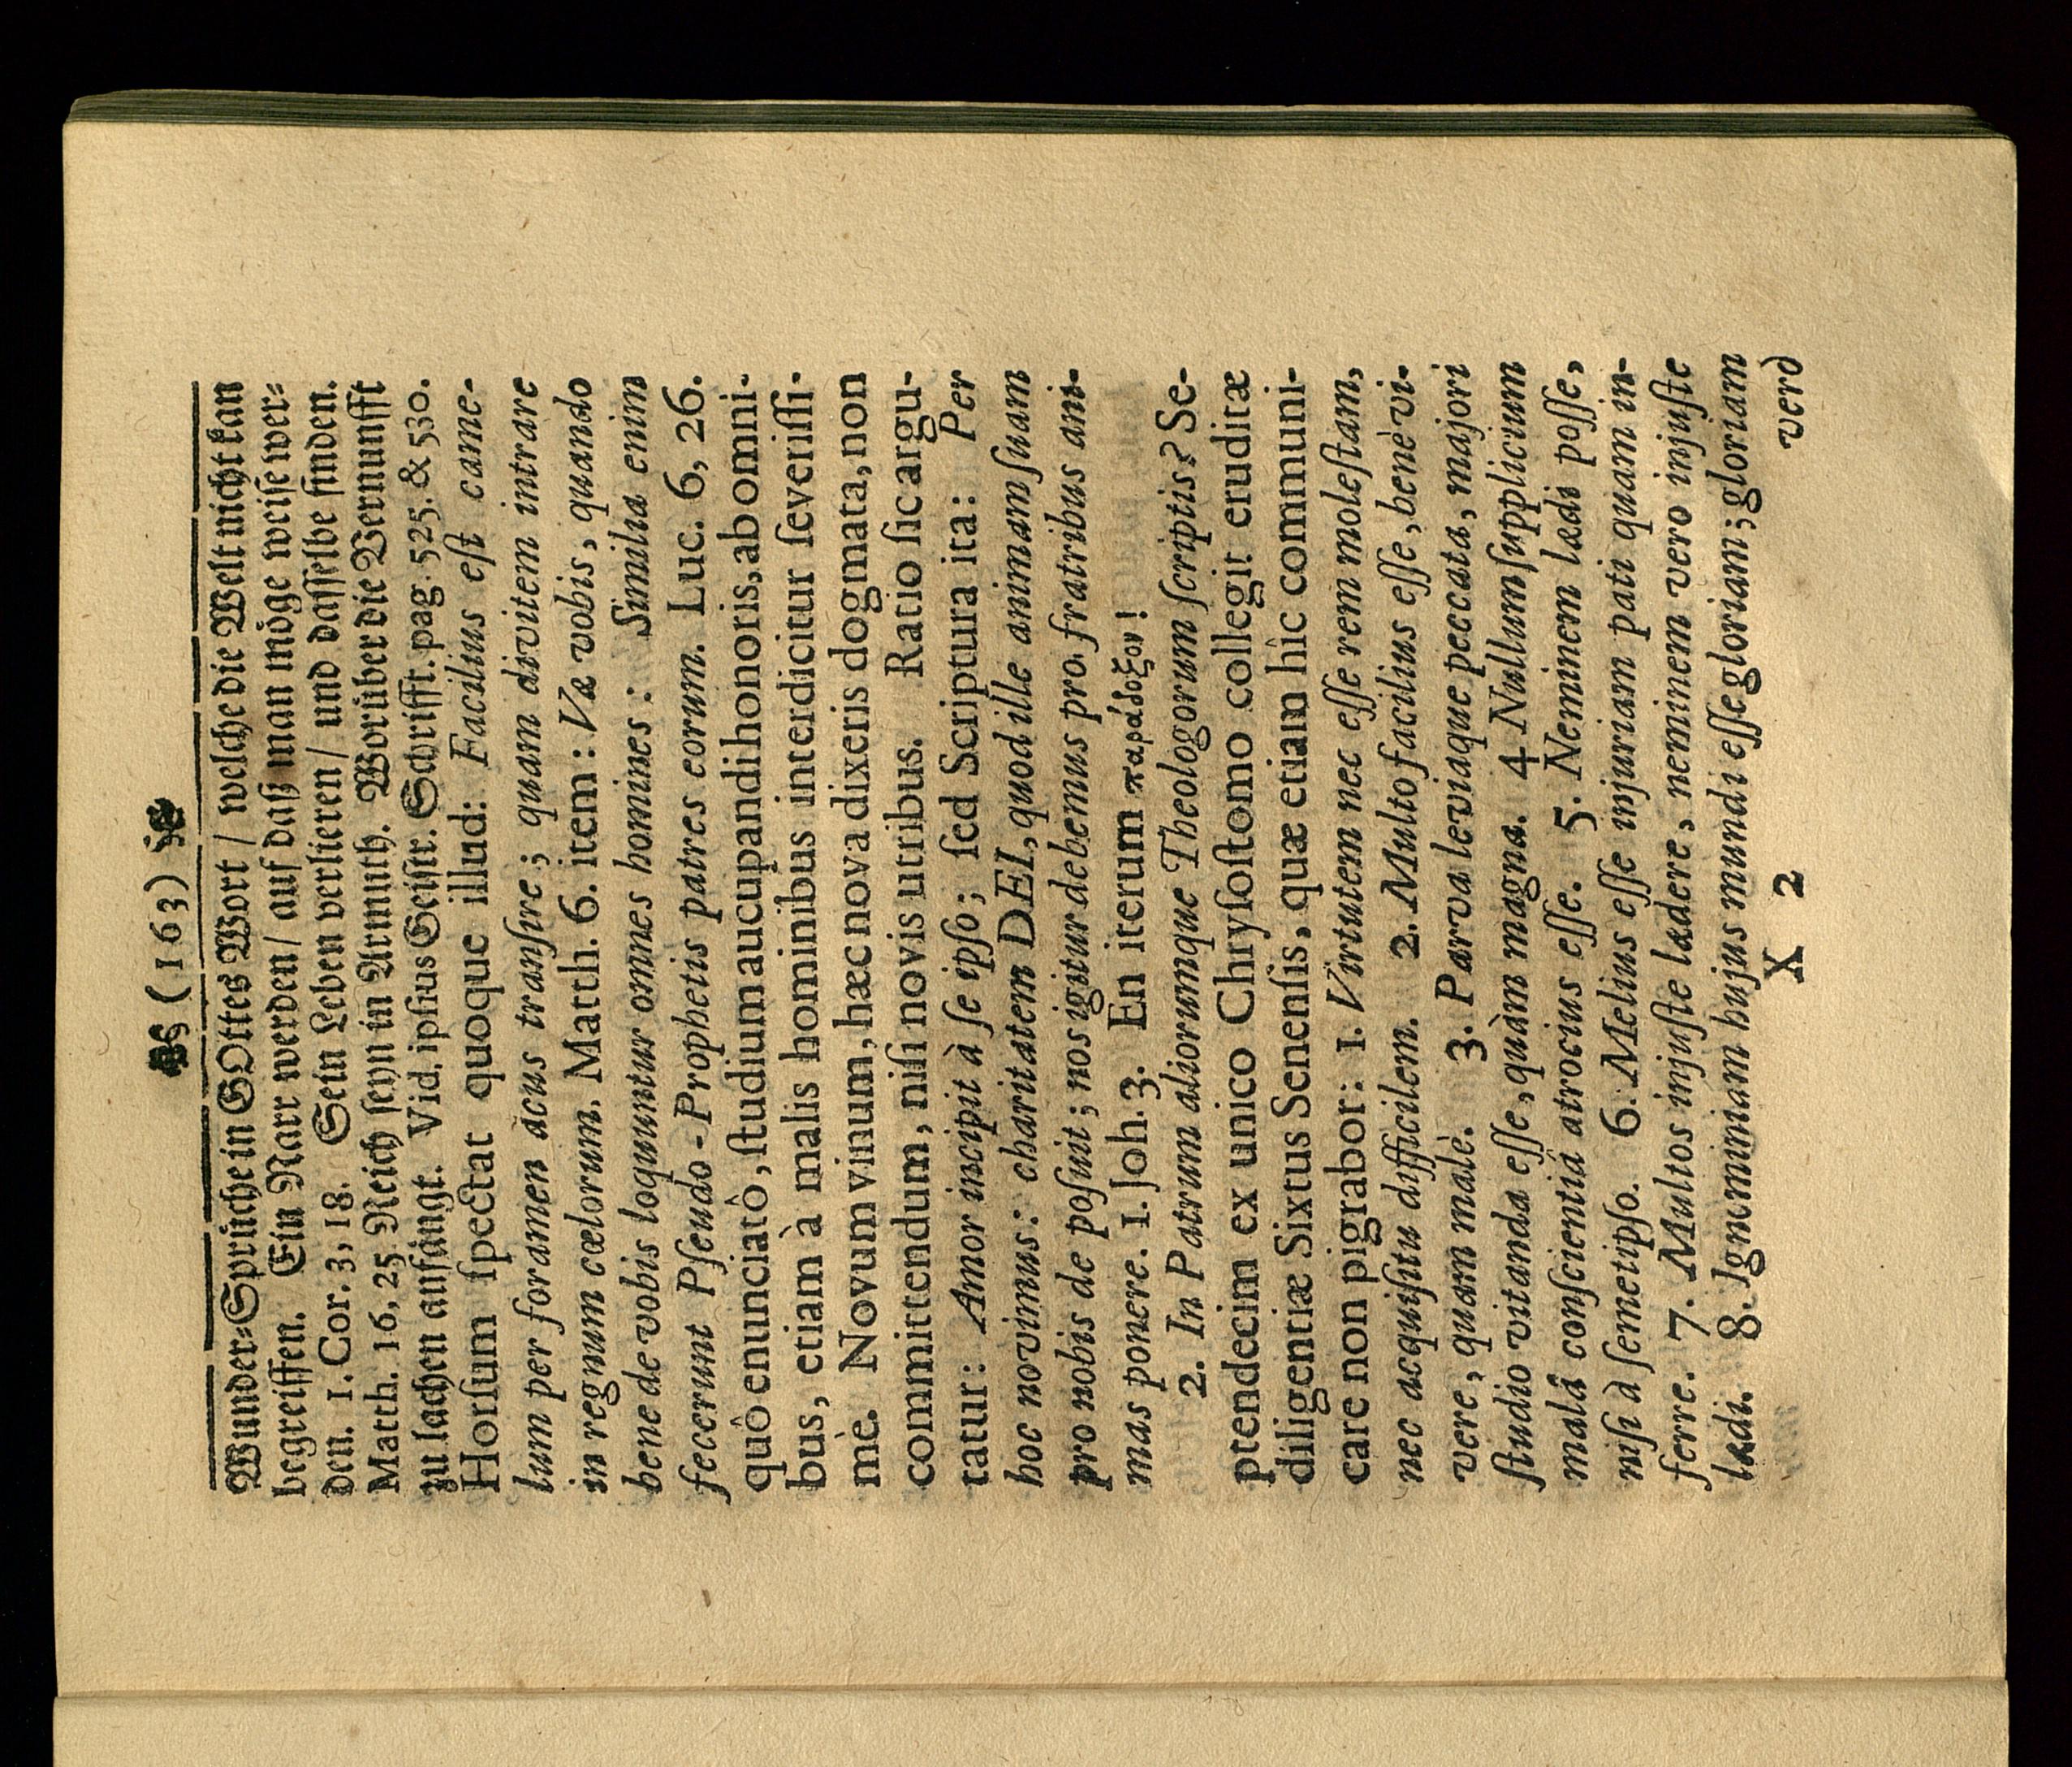 (163)
Wunder=Sprüche in GOttes Wort / welche die Welt nicht kan
begreiffen. Ein Narr werden / auf daß man möge weise wer=
den. 1. Cor. 3, 18. Sein Leben verlieren / und dasselbe finden.
Matth. 16, 25 Reich seyn in Armuth. Worüber die Vernunfft
zu lachen anfängt. Vid. ipſius Geiſtr. Schrifft. pag. 525. & 530.
Horſum ſpectat quoque illud: Facilius eſt came-
lum per foramen acus tranſire; quam divitem intrare
in regnum cælorum. Matth. 6. item: Væ vobis, quando
bene de vobis loquuntur omnes homines: Similia enim
fecerunt Pſeudo-Prophetis patres eorum. Luc. 6, 26.
quô enunciatô, ſtudium aucupandi honoris, ab omni-
bus, etiam à malis hominibus interdicitur ſeveriſſi-
mè. Novum vinum, hæc nova dixeris dogmata, non
committendum, niſi novis utribus. Ratio ſic argu-
tatur: Amor incipit à ſe ipſo; ſed Scriptura ita: Per
hoc novimus: charitatem DEI, quod ille animam ſuam
pro nobis de poſuit; nos igitur debemus pro fratribus ani-
mas ponere. 1. Joh. 3. En iterum παράδοξον!
2. In Patrum aliorumque Theologorum ſcriptis? Se-
ptendecim ex unico Chryſoſtomo collegit eruditæ
diligentiæ Sixtus Senenſis, quæ etiam hîc communi-
care non pigrabor: 1. Virtutem nec eſſe rem moleſtam,
nec acquiſitu difficilem. 2. Multo facilius eſſe, benè vi-
vere, quam malè. 3. Parva leviaque peccata, majori
ſtudio vitanda eſſe, quàm magna. 4 Nullum ſupplicium
malâ conſcientiâ atrocius eſſe. 5. Neminem lædi poſſe,
niſi à ſemetipſo. 6. Melius eſſe injuriam pati quam in-
ferre. 7. Multos injuſte lædere, neminem vero injuſte
lædi. 8. Ignominiam hujus mundi eſſe gloriam; gloriam
X 2 verò